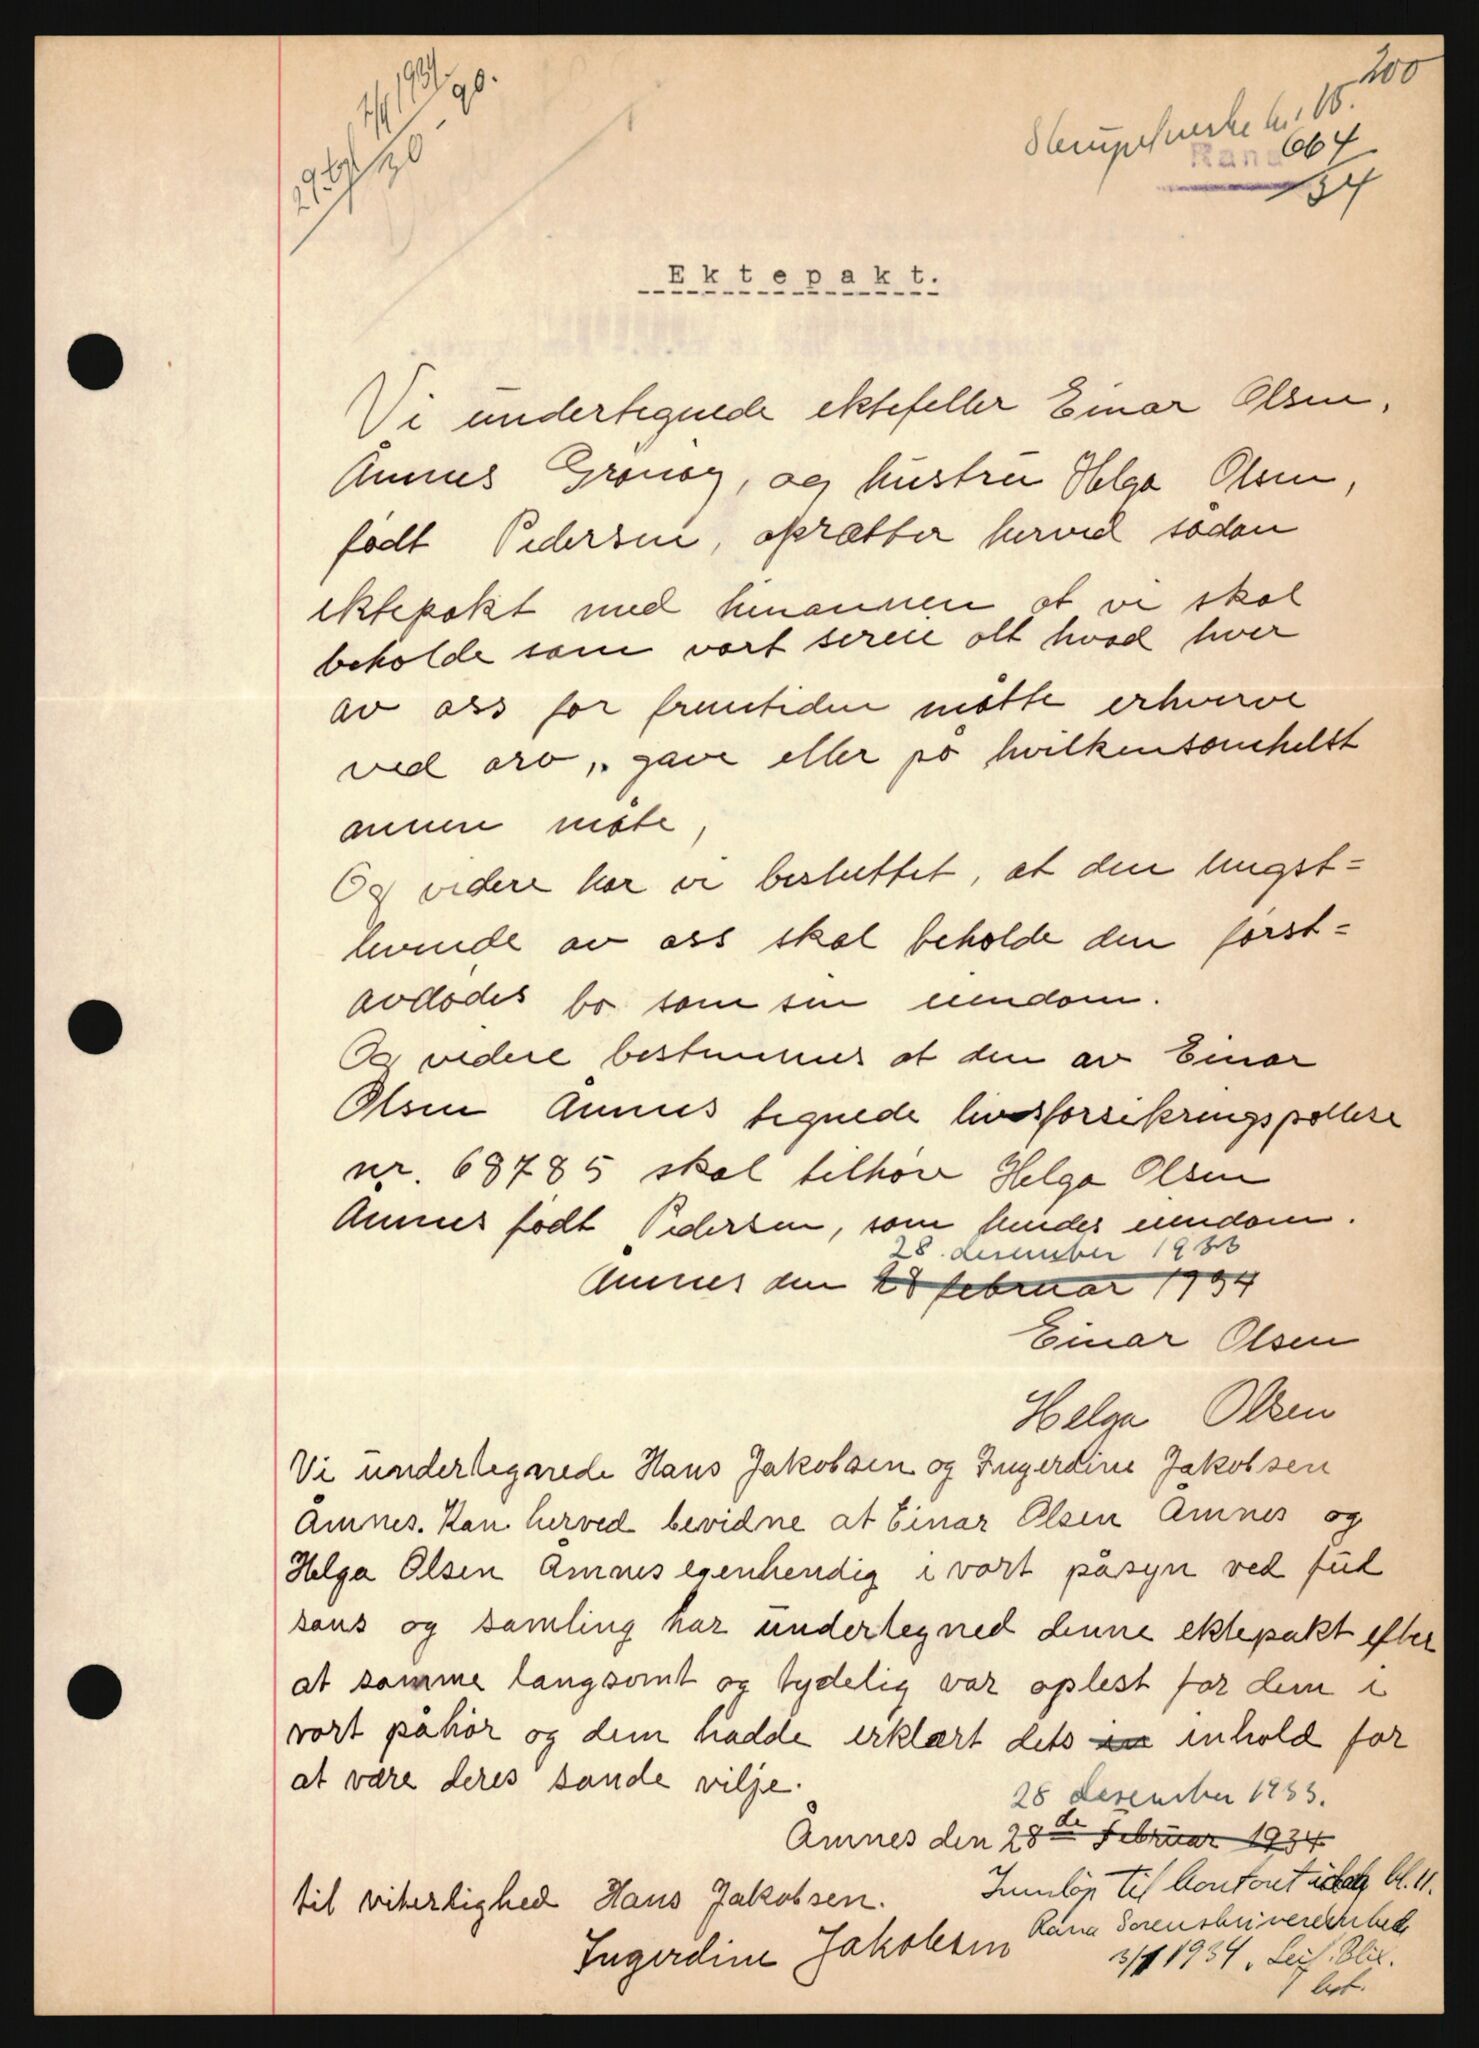 200
2/4 1934
90.
30
Stempelmerke kr. 10.
Rana 664
34
Ektepakt.
Vi undertegnede ektefeller Einar Olsen,
Åmnes Grönöy, og hustru Helga Olsen,
födt Pedersen, oprætter herved sådan
ektepakt med hinannen at vi skal
beholde som vort sereie alt hvad hver
av oss for fremtiden måtte erhverve
ved arv, gave eller på hvilkensomhelst
annen måte,
Og videre har vi besluttet, at den lengst=
levende av oss skal beholde den först=
avdödes bo som sin eiendom.
Og videre bestemmes at den av Einar
Olsen Åmnes tegnede livsforsikringspollise
nr. 68785 skal tilhöre Helga Olsen
Åmnes födt Pedersen, som hendes eiendom.
28. desember 1933
Åmnes den 28 februar 1934
Einar Olsen
Helga Olsen
Vi undertegnede Hans Jakobsen og Ingerdine Jakobsen
Åmnes. Kan herved bevidne at Einar Olsen Åmnes og
Helga Olsen Åmnes egenhendig i vort påsyn ved ful
sans og samling har undertegned denne ektepakt efter
at samme langsomt og tydelig var oplest for dem i
vort påhör og dem hadde erklært dets in inhold for
at være deres sande vilje.
28 desember 1933.
Åmnes den 28de Februar 1934
til viterlighed Hans Jakobsen.
Ingerdine Jakobsen
Innlöp til kontoret idag kl. 11.
Rana Sorenskriverembede
3/1 1934. Leif Blix.